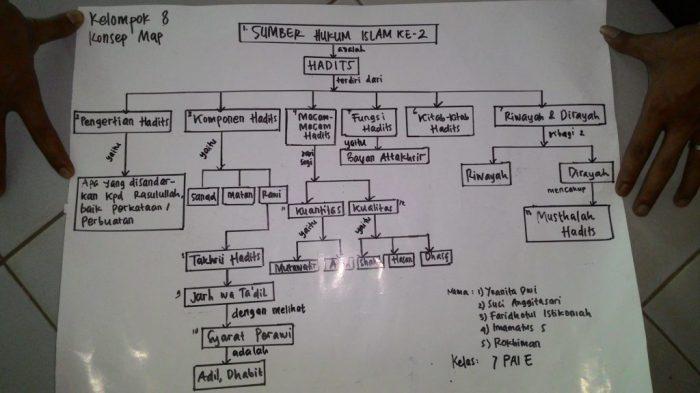 Kelompok 8
Konsep Map
1. SUMBER HUKUM ISLAM KE-2
adalah
HADITS
terdiri dari
2 Pengertian Hadits
3 Komponen Hadits
4 Macam-
Macam
Hadits
5 Fungsi
Hadits
6 Kitab-kitab
Hadits
7 Riwayah & Dirayah
yaitu
yaitu
dari
segi
yaitu
Bayan Attakhrir
terbagi 2
Riwayah
Dirayah
mencakup
Musthalah
Hadits
Apa yang disandar-
kan kpd Rasulullah,
baik perkataan /
Perbuatan
sanad
matan
Rawi
Kuantitas
Kualitas
yaitu
yaitu
Mutawatir
Shahih
Hasan
Dhaif
Takhrij Hadits
9
Jarh wa Ta'dil
dengan melihat
10
Syarat Perawi
adalah
Adil, Dhabit
Nama : 1) Yuanita Dwi
2) Suci Anggitasari
3) Faridhotul Istikomah
4) Imamatus S
5) Rokhiman
Kelas : 7 PAI E